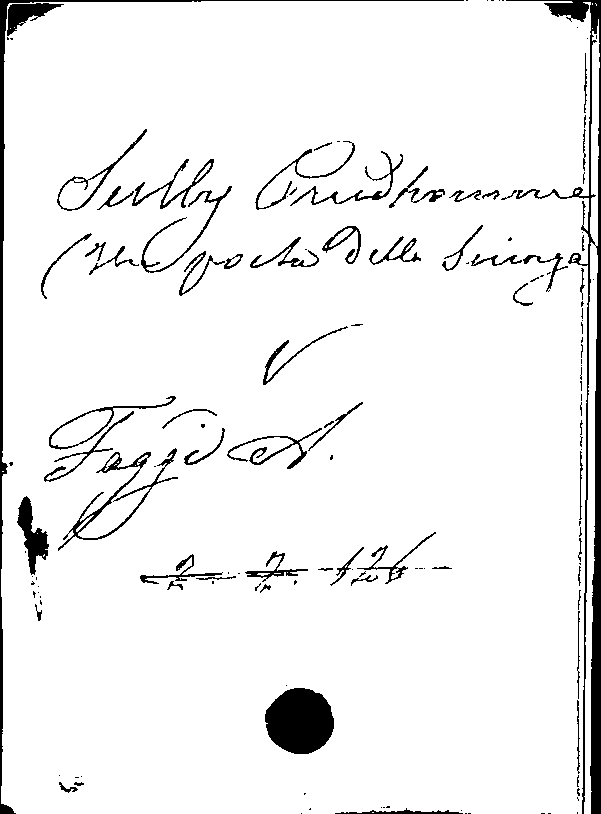 Sully Prudhomme
(Un poeta della Scienza
V
Faggi A.